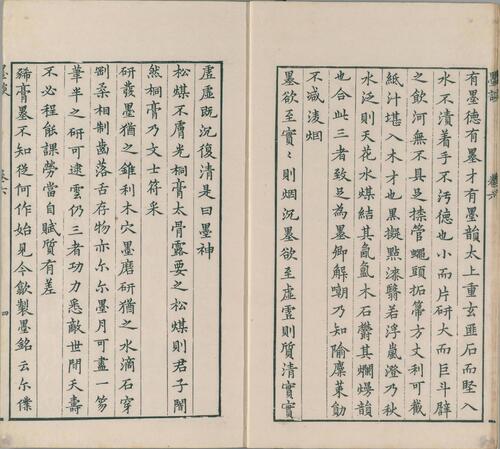 有墨德有墨才有墨韻太上重玄匪石而堅入
水不漬着手不污德也小而片研大而巨斗辟
之飲河無不具足搡管蠅頭拓篰方丈利可截
紙汁堪入木才也異擬點漆翳若浮嵐澄乃秋
水泛則天花水煤結其氤氳木石欝其爛煬韻
也合此三者致足為墨卿解嘲乃知隃麋菓
不減凌烟
墨欲至實〻則烟沉墨欲至虛虛則質清實實
虛虛既沉復清是曰墨神
松煤不膚光桐膏太骨露要之松煤則君子闇
然桐膏乃文士符采
研發墨猶之錐利木穴墨磨研猶之水滴石穿
剛柔相制齒落舌存物亦尔尔墨月可盡一笏
筆半之研可逮雲仍三者功力悉敵世間夭壽
不必程能課勞當自賦質有差
豨膏墨不知從何作始見今歙製墨銘云尔儻
四